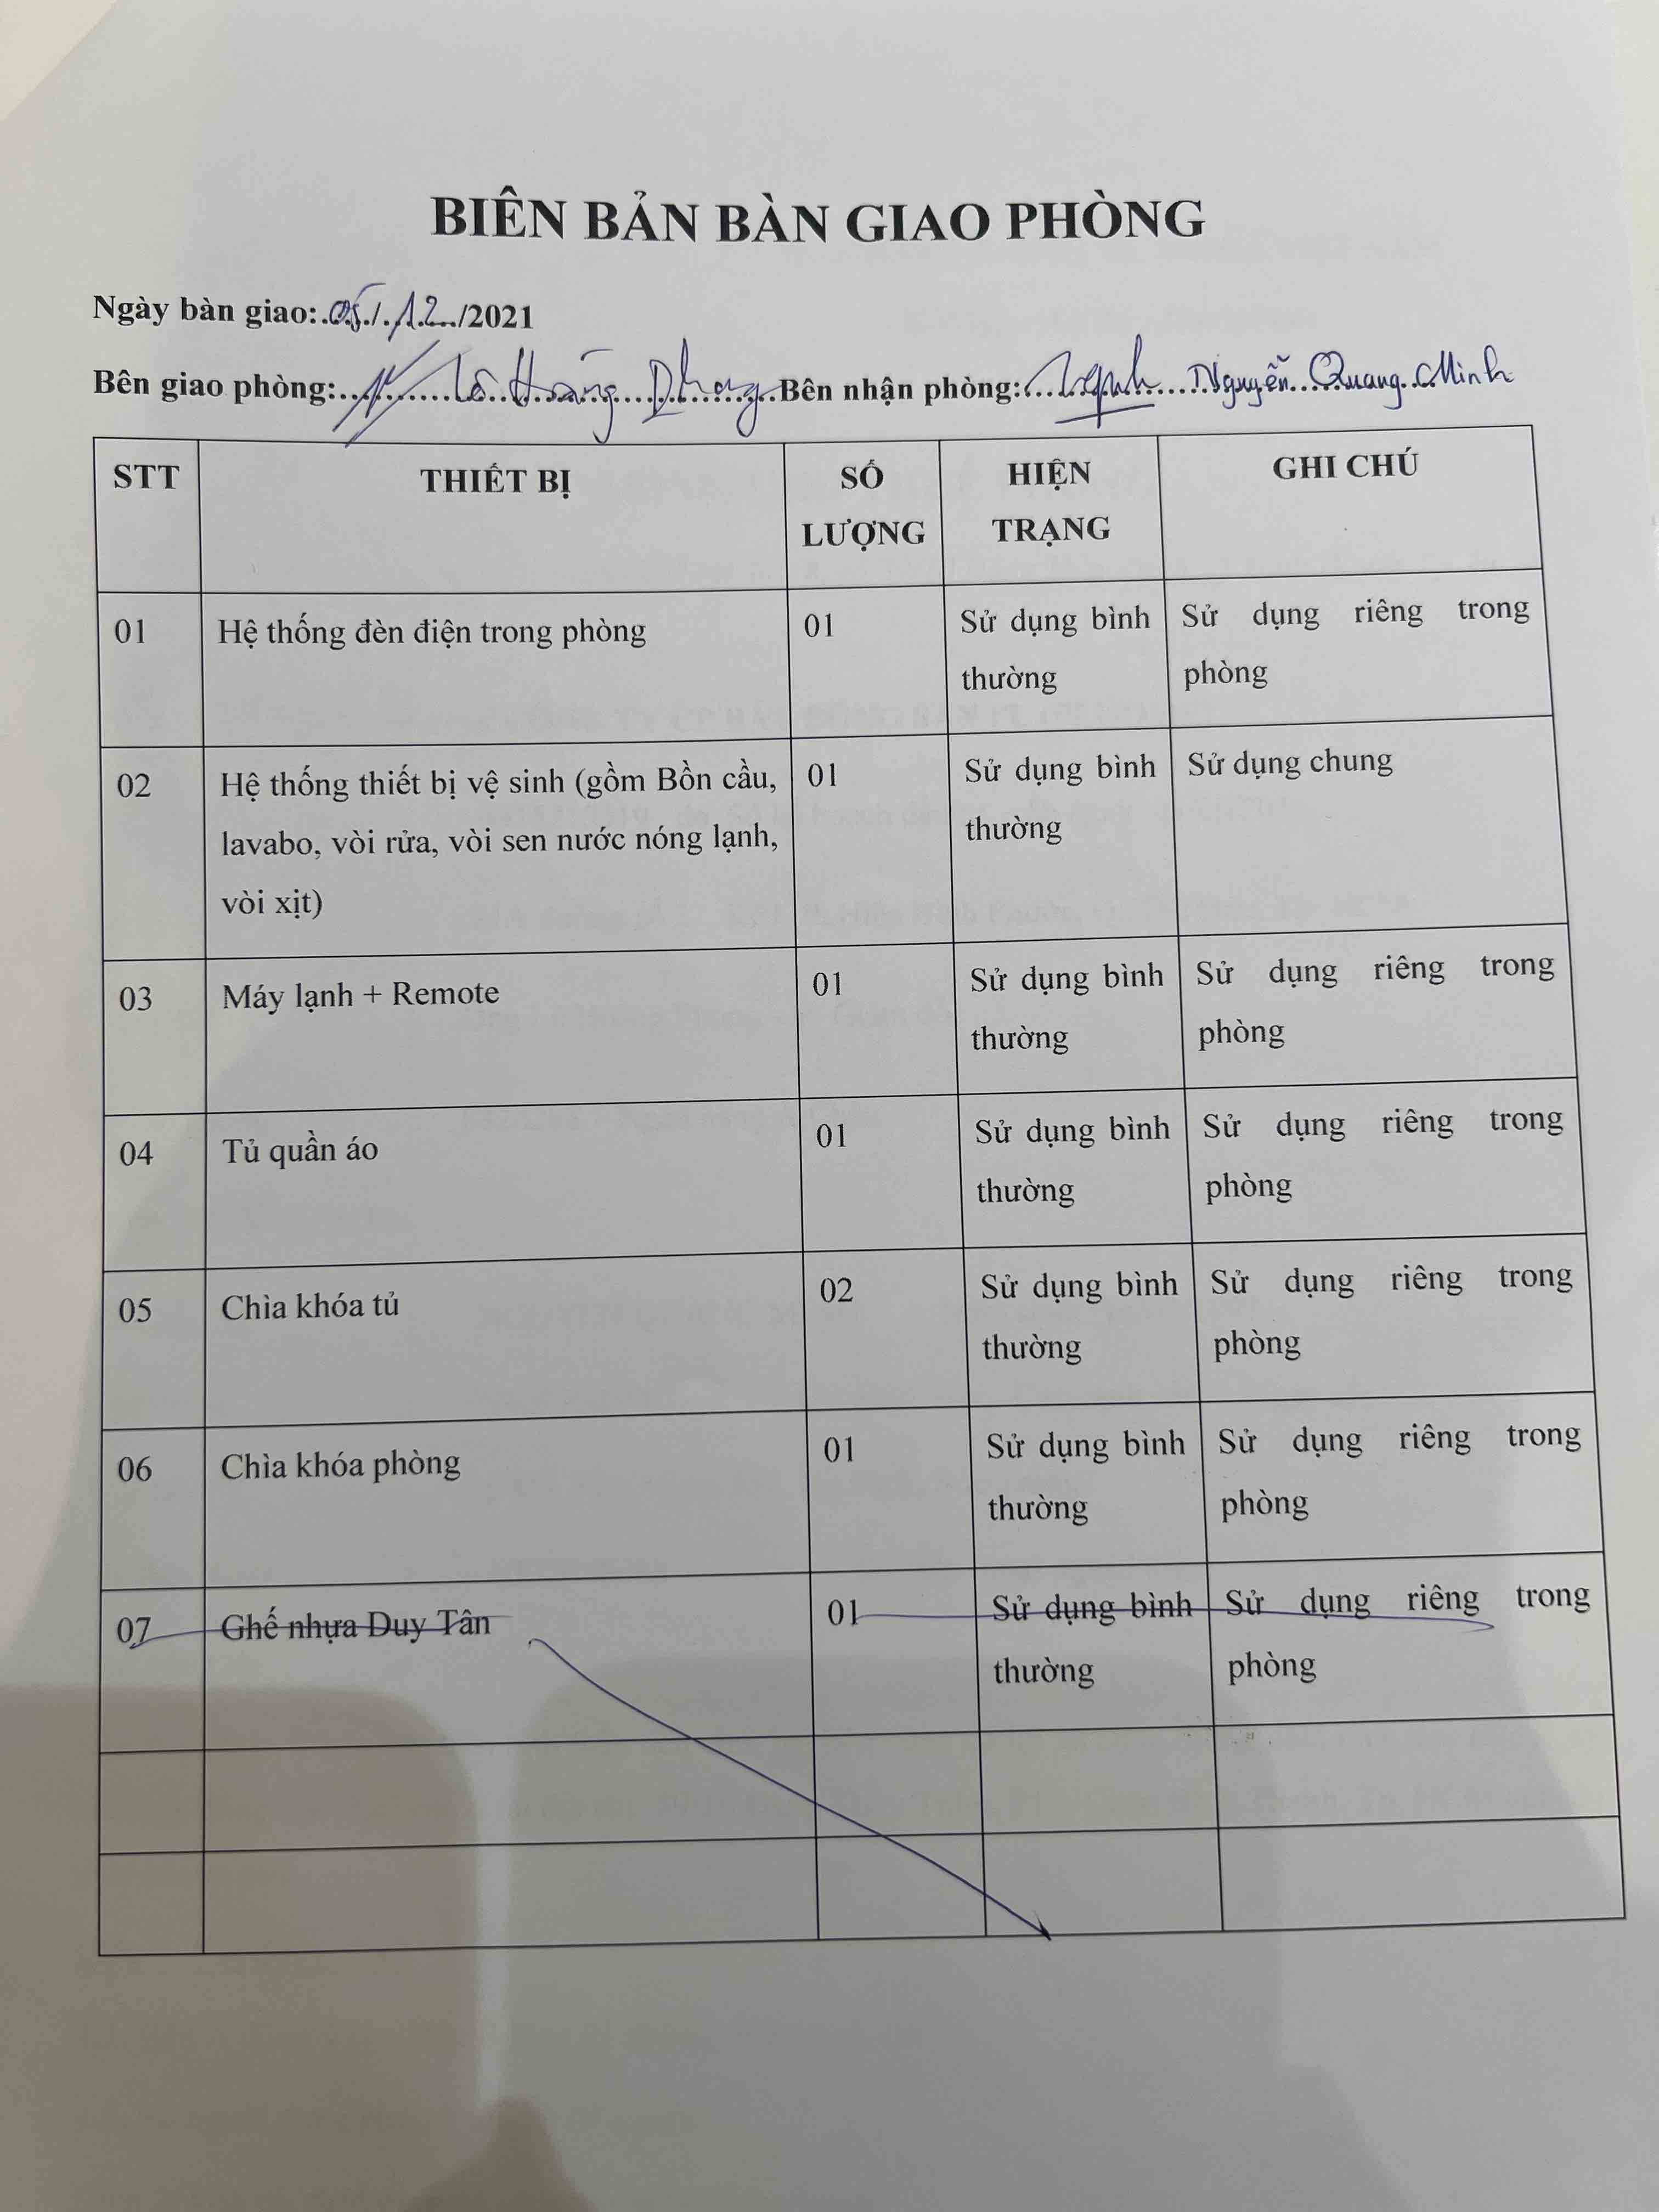 BIÊN BẢN BÀN GIAO PHÒNG
Ngày bàn giao:.05./.12../2021
Bên giao phòng:.......Lê Hoàng Phong..Bên nhận phòng:.......Nguyễn Quang Minh
STT THIẾT BỊ SỐ LƯỢNG HIỆN TRẠNG GHI CHÚ
01 Hệ thống đèn điện trong phòng 01 Sử dụng bình thường Sử dụng riêng trong phòng
02 Hệ thống thiết bị vệ sinh (gồm Bồn cầu, lavabo, vòi rửa, vòi sen nước nóng lạnh, vòi xịt) 01 Sử dụng bình thường Sử dụng chung
03 Máy lạnh + Remote 01 Sử dụng bình thường Sử dụng riêng trong phòng
04 Tủ quần áo 01 Sử dụng bình thường Sử dụng riêng trong phòng
05 Chìa khóa tủ 02 Sử dụng bình thường Sử dụng riêng trong phòng
06 Chìa khóa phòng 01 Sử dụng bình thường Sử dụng riêng trong phòng
07 Ghế nhựa Duy Tân 01 Sử dụng bình thường Sử dụng riêng trong phòng